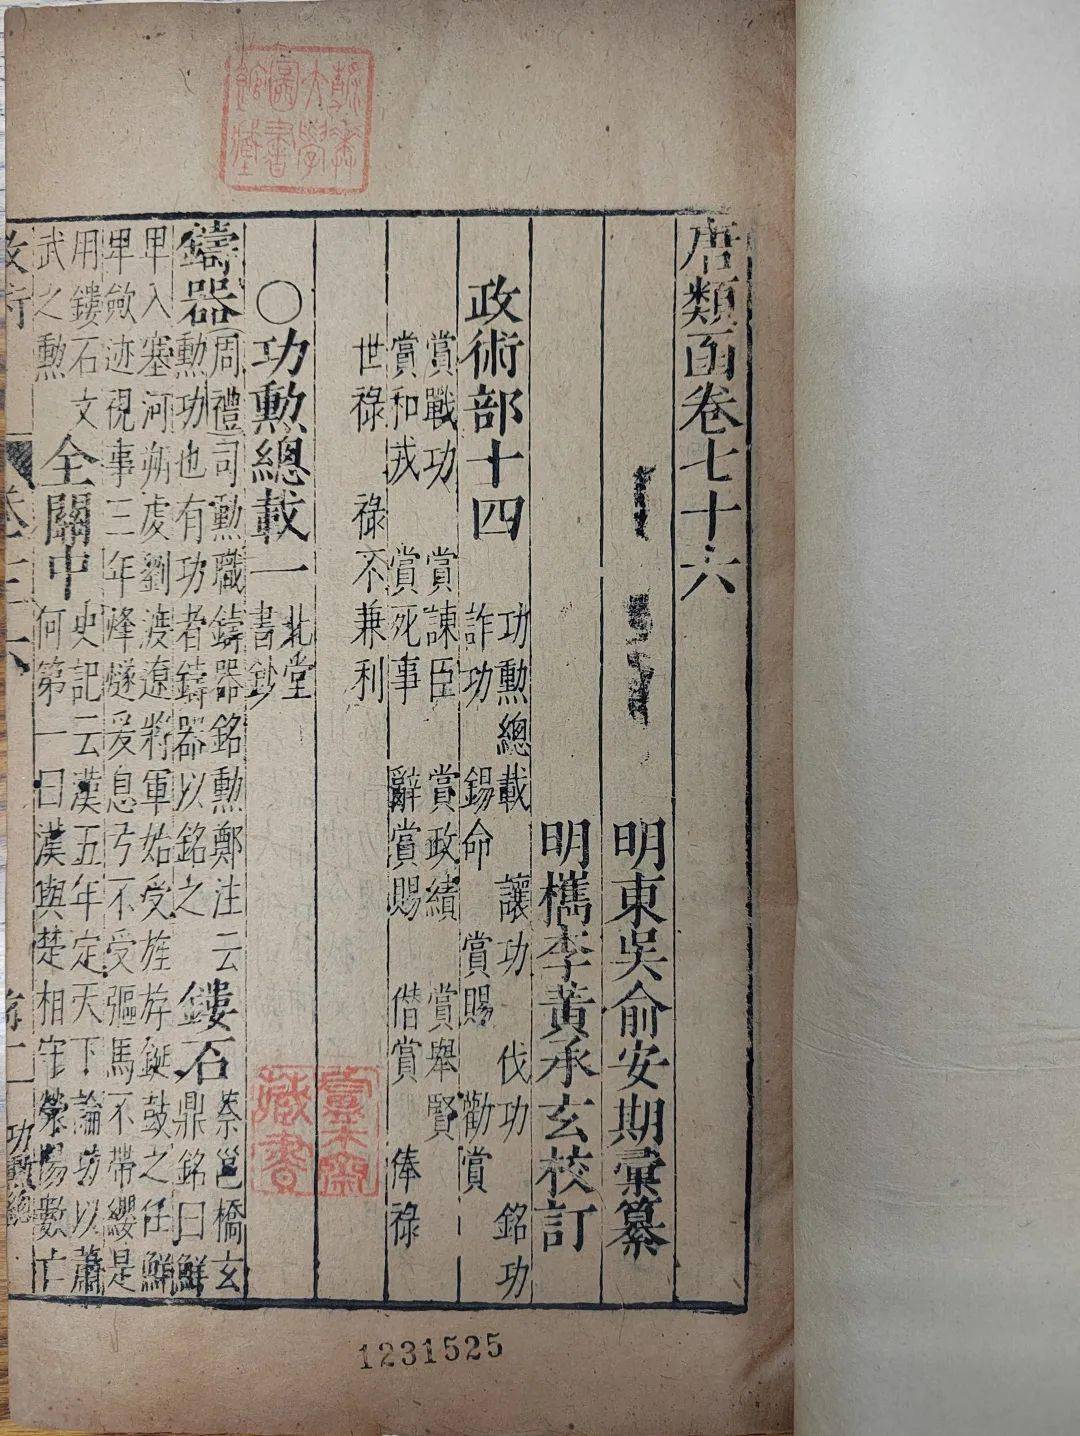 大學圖書館藏
唐類函卷七十六
明東吳俞安期彙纂
明檇李黃承玄校訂
政術部十四
功勳總載 讓功 伐功 銘功
詐功 錫命 賞賜 勸賞
賞戰功 賞諫臣 賞政績 賞舉賢
賞和戎 賞死事 辭賞賜 僭賞 俸祿
世祿 祿不兼利
〇功勳總載一 北堂書鈔
鑄器
周禮司勳職鑄器銘勳鄭注云
勳功也有功者鑄器以銘之
鏤石
蔡邕橋玄
鼎銘曰鮮
卑入塞河朔虔劉渡遼將軍始受旄斿鉞鼓之任鮮
卑斂迹視事三年烽燧爰息弓不受彄馬不帶纓是
用鏤石文
武之勳
全關中
史記云漢五年定天下論功以蕭
何第一曰漢與楚相守滎陽數亡
藏書
政術 卷七十六 功勳總
1231525